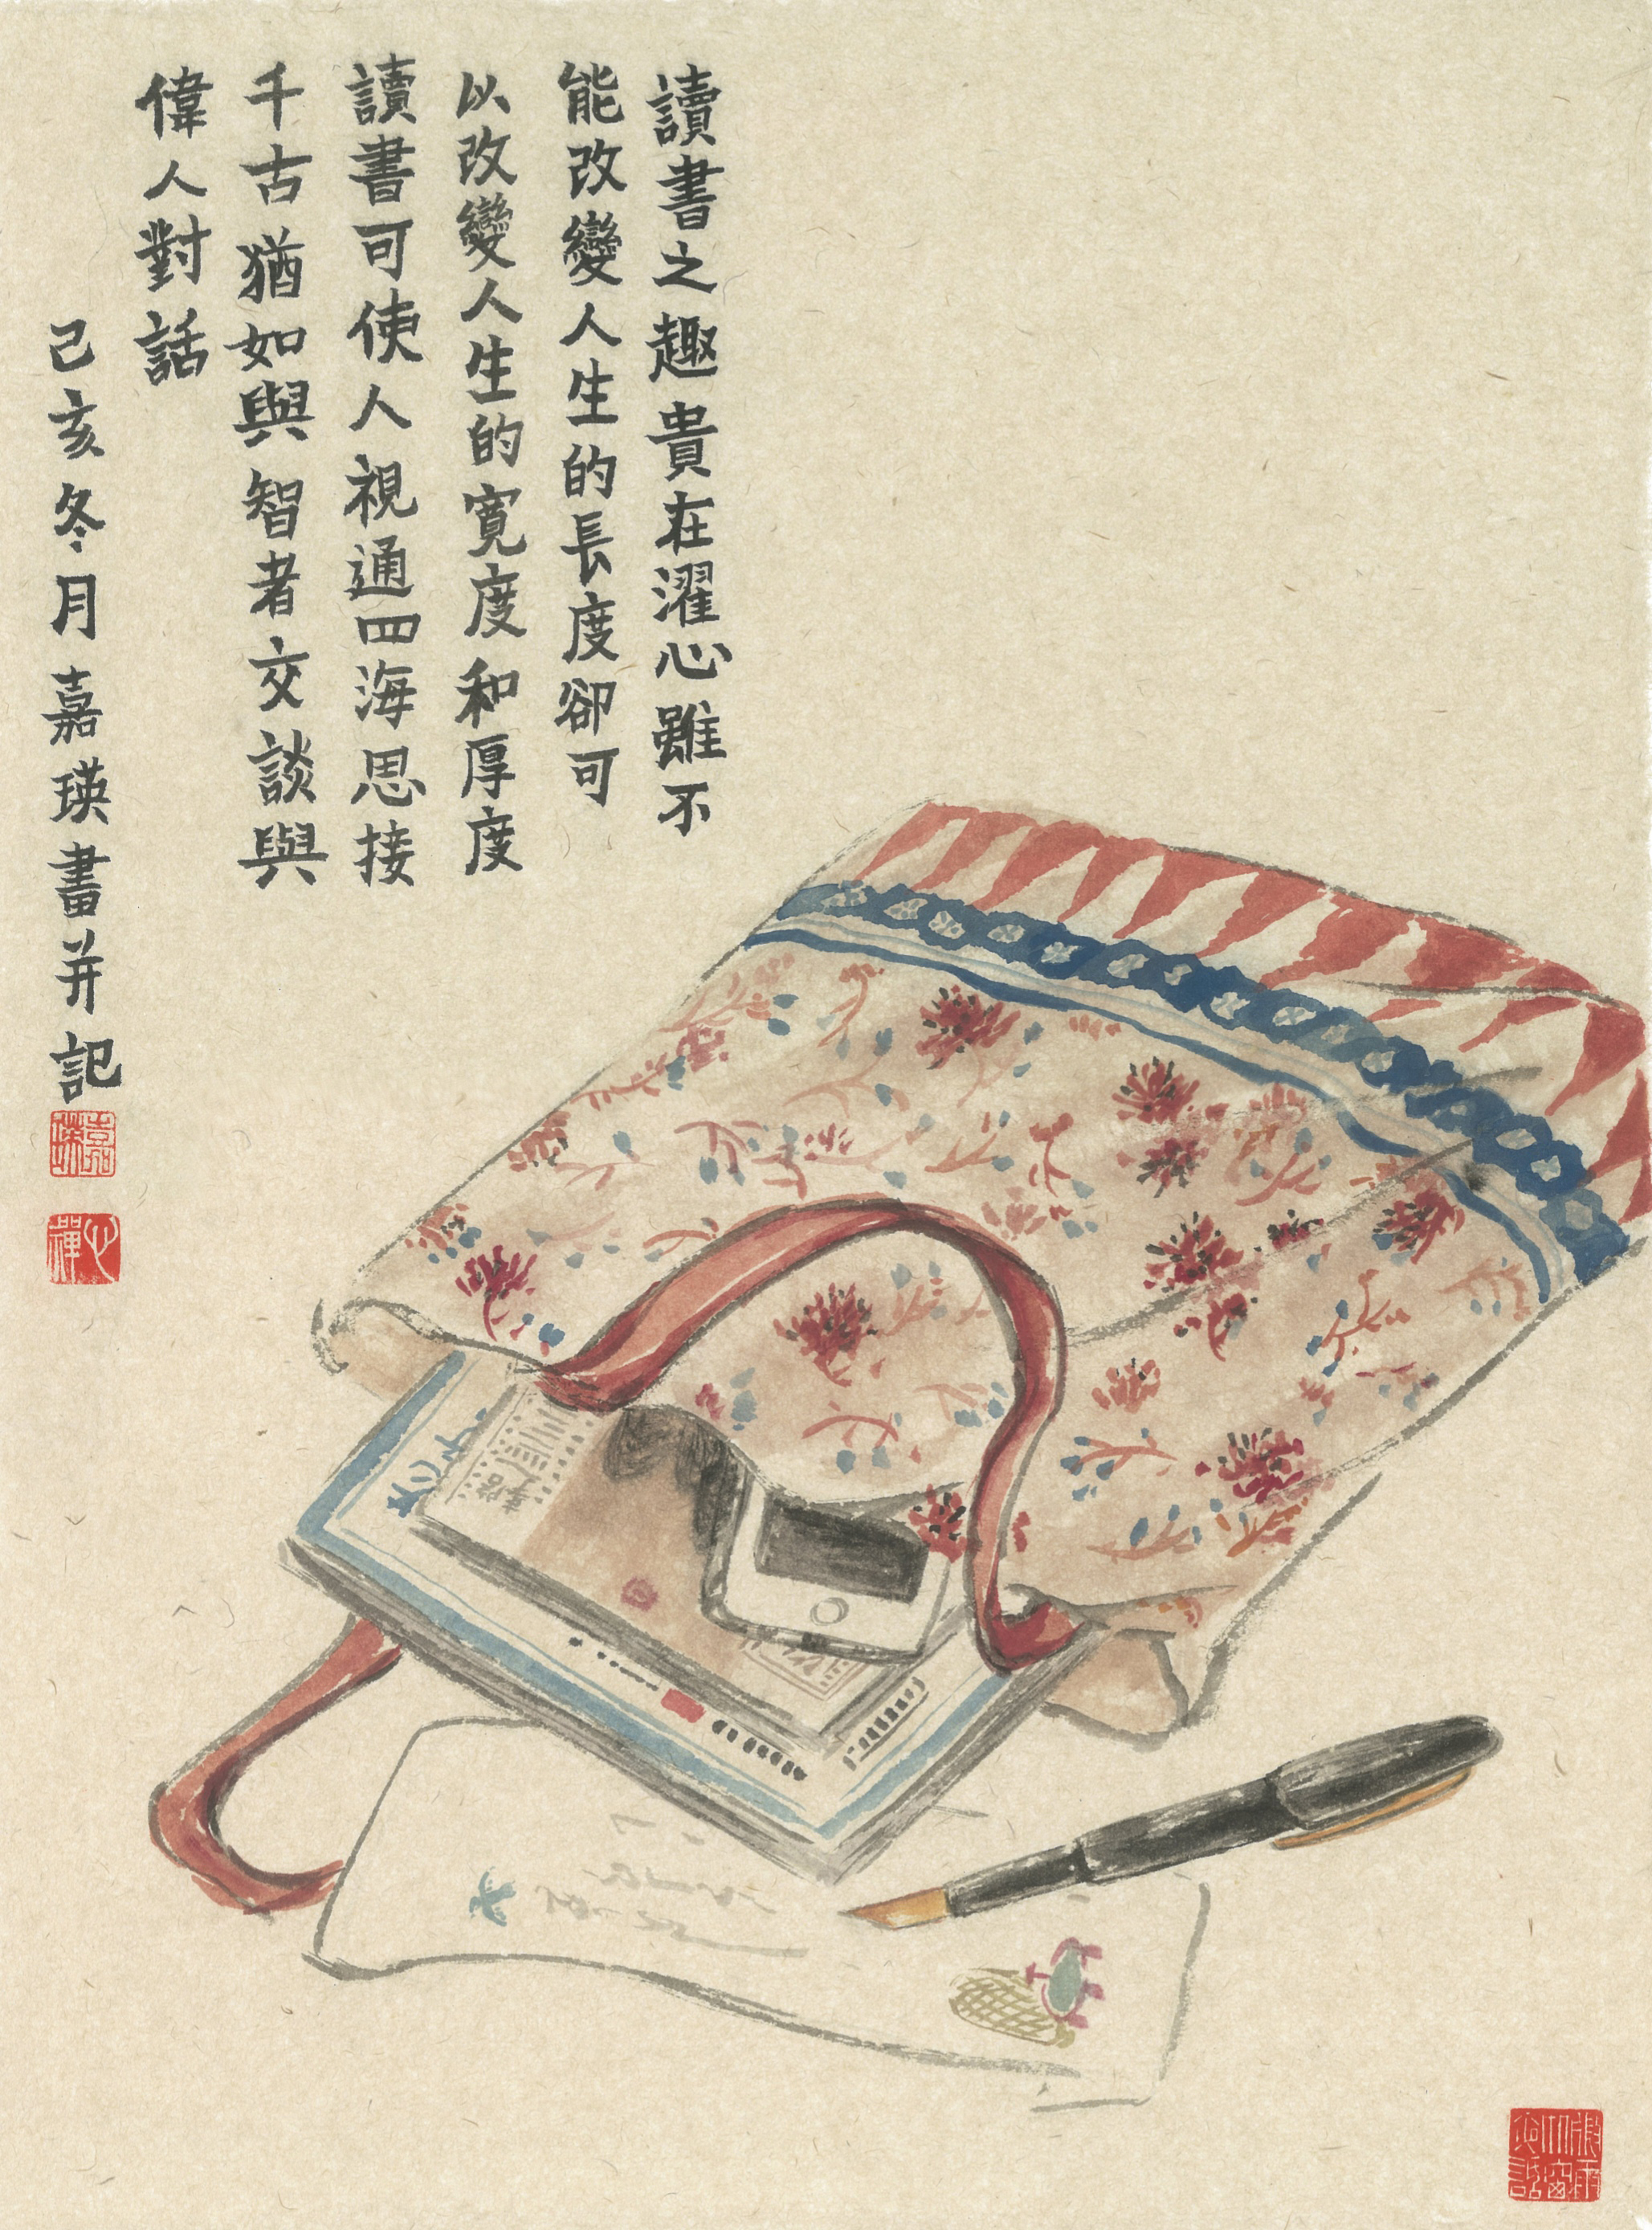 讀書之趣貴在濯心雖不
能改變人生的長度卻可
以改變人生的寬度和厚度
讀書可使人視通四海思接
千古猶如與智者交談與
偉人對話
己亥冬月嘉瑛畫并記
嘉瑛
心禪